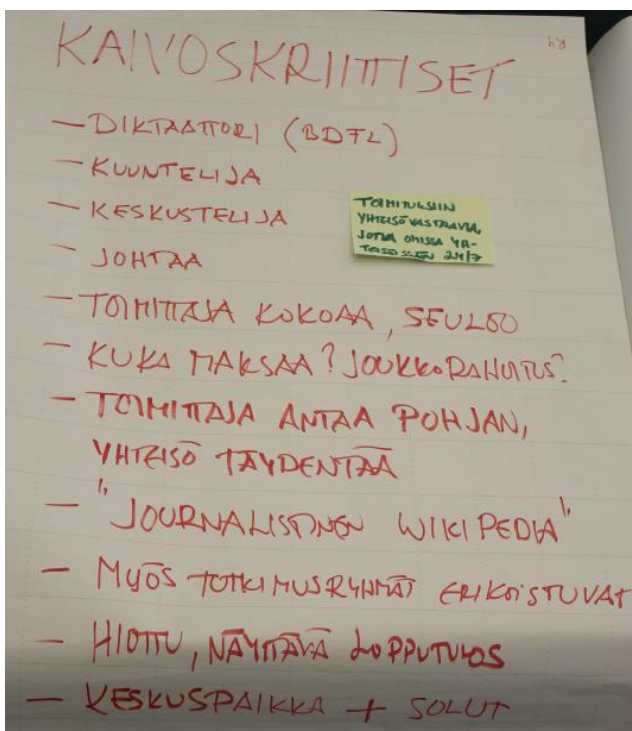 KAIVOSKRIITTISET
— DIKTAATTORI (BDFL)
— KUUNTELIJA
— KESKUSTELIJA
— JOHTAA
TOIMITUKSIIN
YHTEISÖVASTAAVIA,
JOTKA OMISSA YH-
TEISÖISSÄÄN 24/7
— TOIMITTAJA KOKOAA, SEULOO
— KUKA MAKSAA? JOUKKORAHOITUS?
— TOIMITTAJA ANTAA POHJAN,
YHTEISÖ TÄYDENTÄÄ
— "JOURNALISTINEN WIKIPEDIA"
— MYÖS TUTKIMUSRYHMÄT ERIKOISTUVAT
— HIOTTU, NÄYTTÄVÄ LOPPUTULOS
— KESKUSPAIKKA + SOLUT